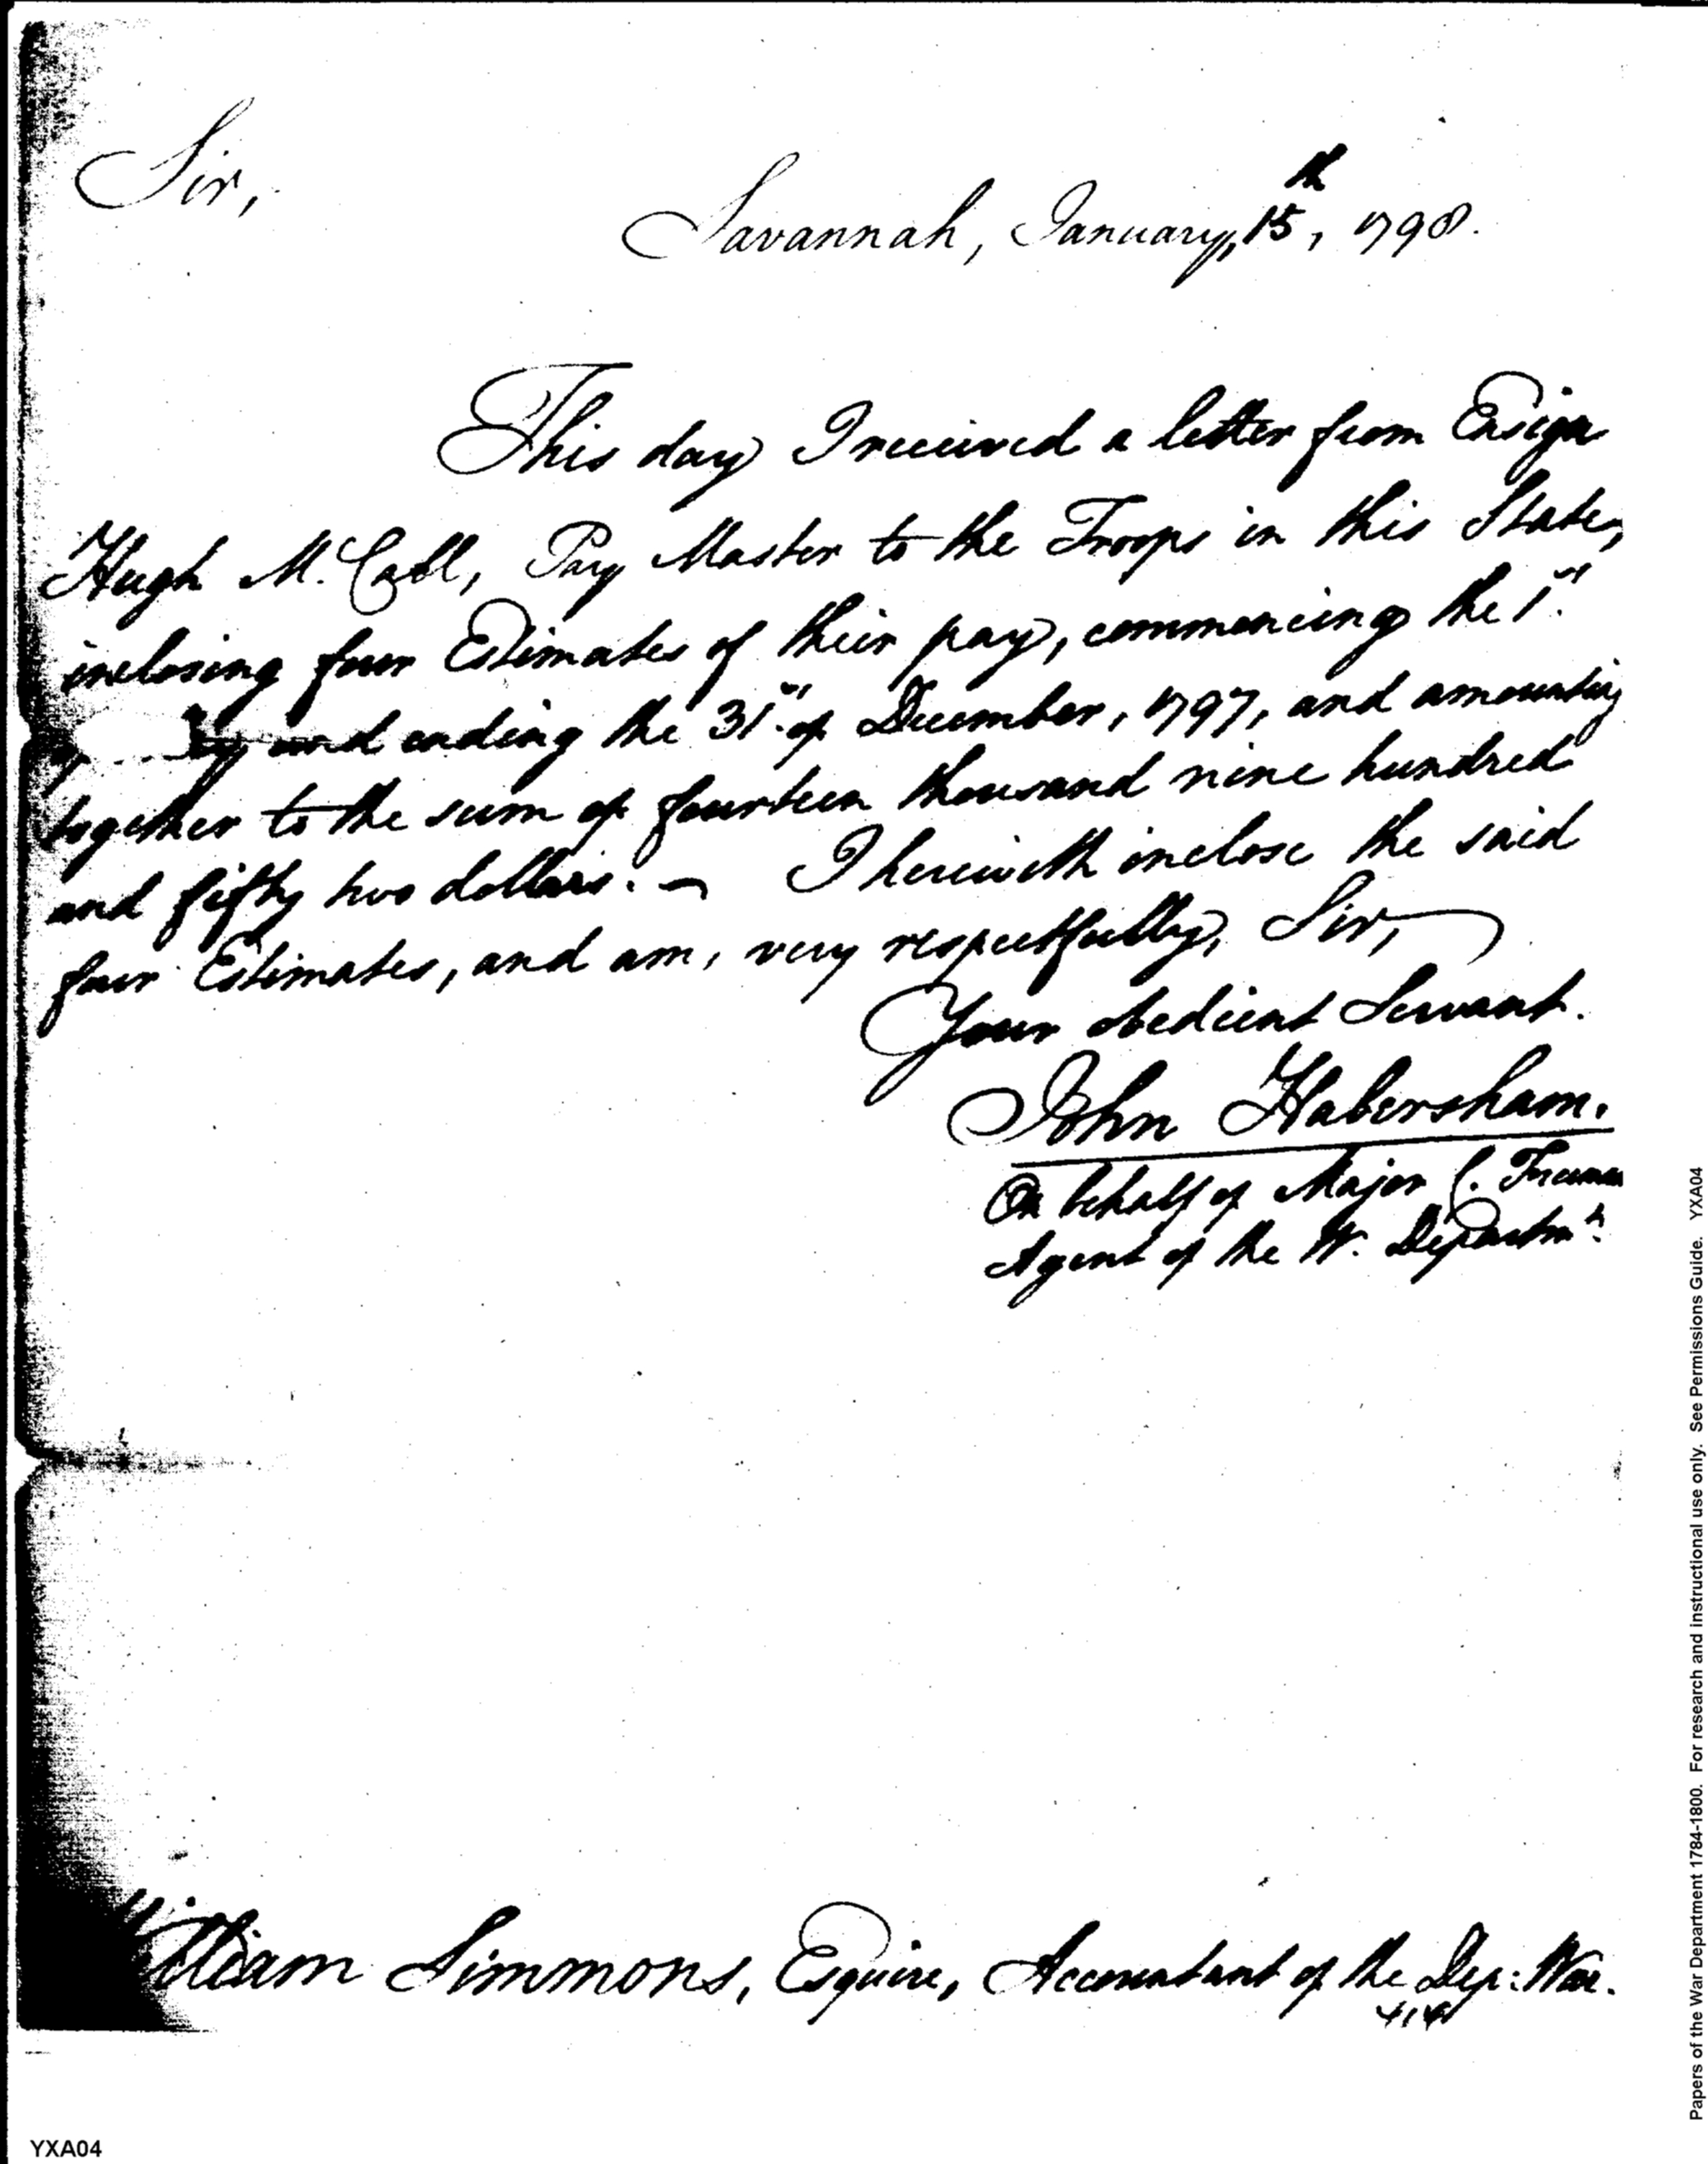 Sir,
Savannah, January, 15th, 1798.
This day I received a letter from Ensign
Hugh M.Call, Pay Master to the Troops in this State,
inclosing four Estimates of their pay, commencing the 1st.
and ending the 31st. of December, 1797, and amounting
together to the sum of fourteen thousand nine hundred
and fifty two dollars. — I herewith inclose the said
four Estimates, and am, very respectfully, Sir,
Your obedient Servant.
John Habersham.
On behalf of Major C. Freeman
Agent of the W. Departmt.
William Simmons, Esquire, Accountant of the Dep: War.
YXA04
Papers of the War Department 1784-1800. For research and instructional use only. See Permissions Guide. YXA04